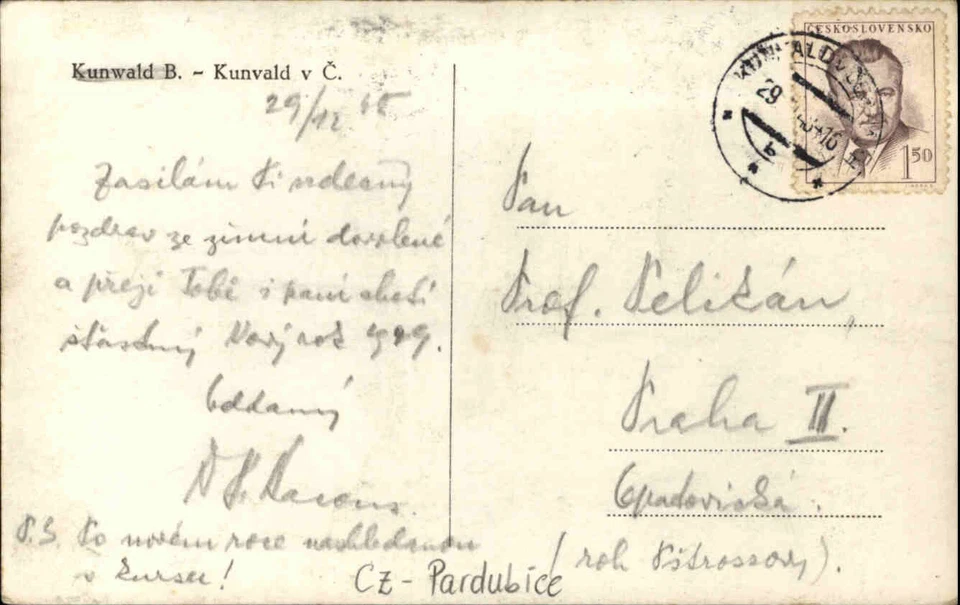 Kunwald B. – Kunvald v Č.
29/12 48
Zasílám Ti srdečný
pozdrav ze zimní dovolené
a přeji Tobě i paní choti
šťastný Nový rok 1949.
Oddaný
P.S. Po novém roce nashledanou
v kursu!
CZ - Pardubice
ČESKOSLOVENSKO
1 50
29
16
b
Pan
Prof. Pelikán,
Praha II.
Opatovická
(roh Pštrossovy).